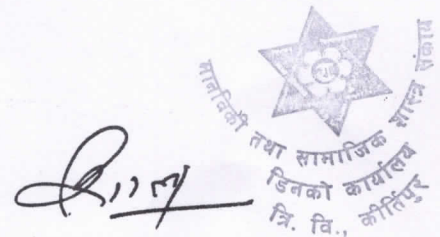 मानविकी तथा सामाजिक शास्त्र संकाय
डिनको कार्यालय
त्रि. वि., कीर्तिपुर